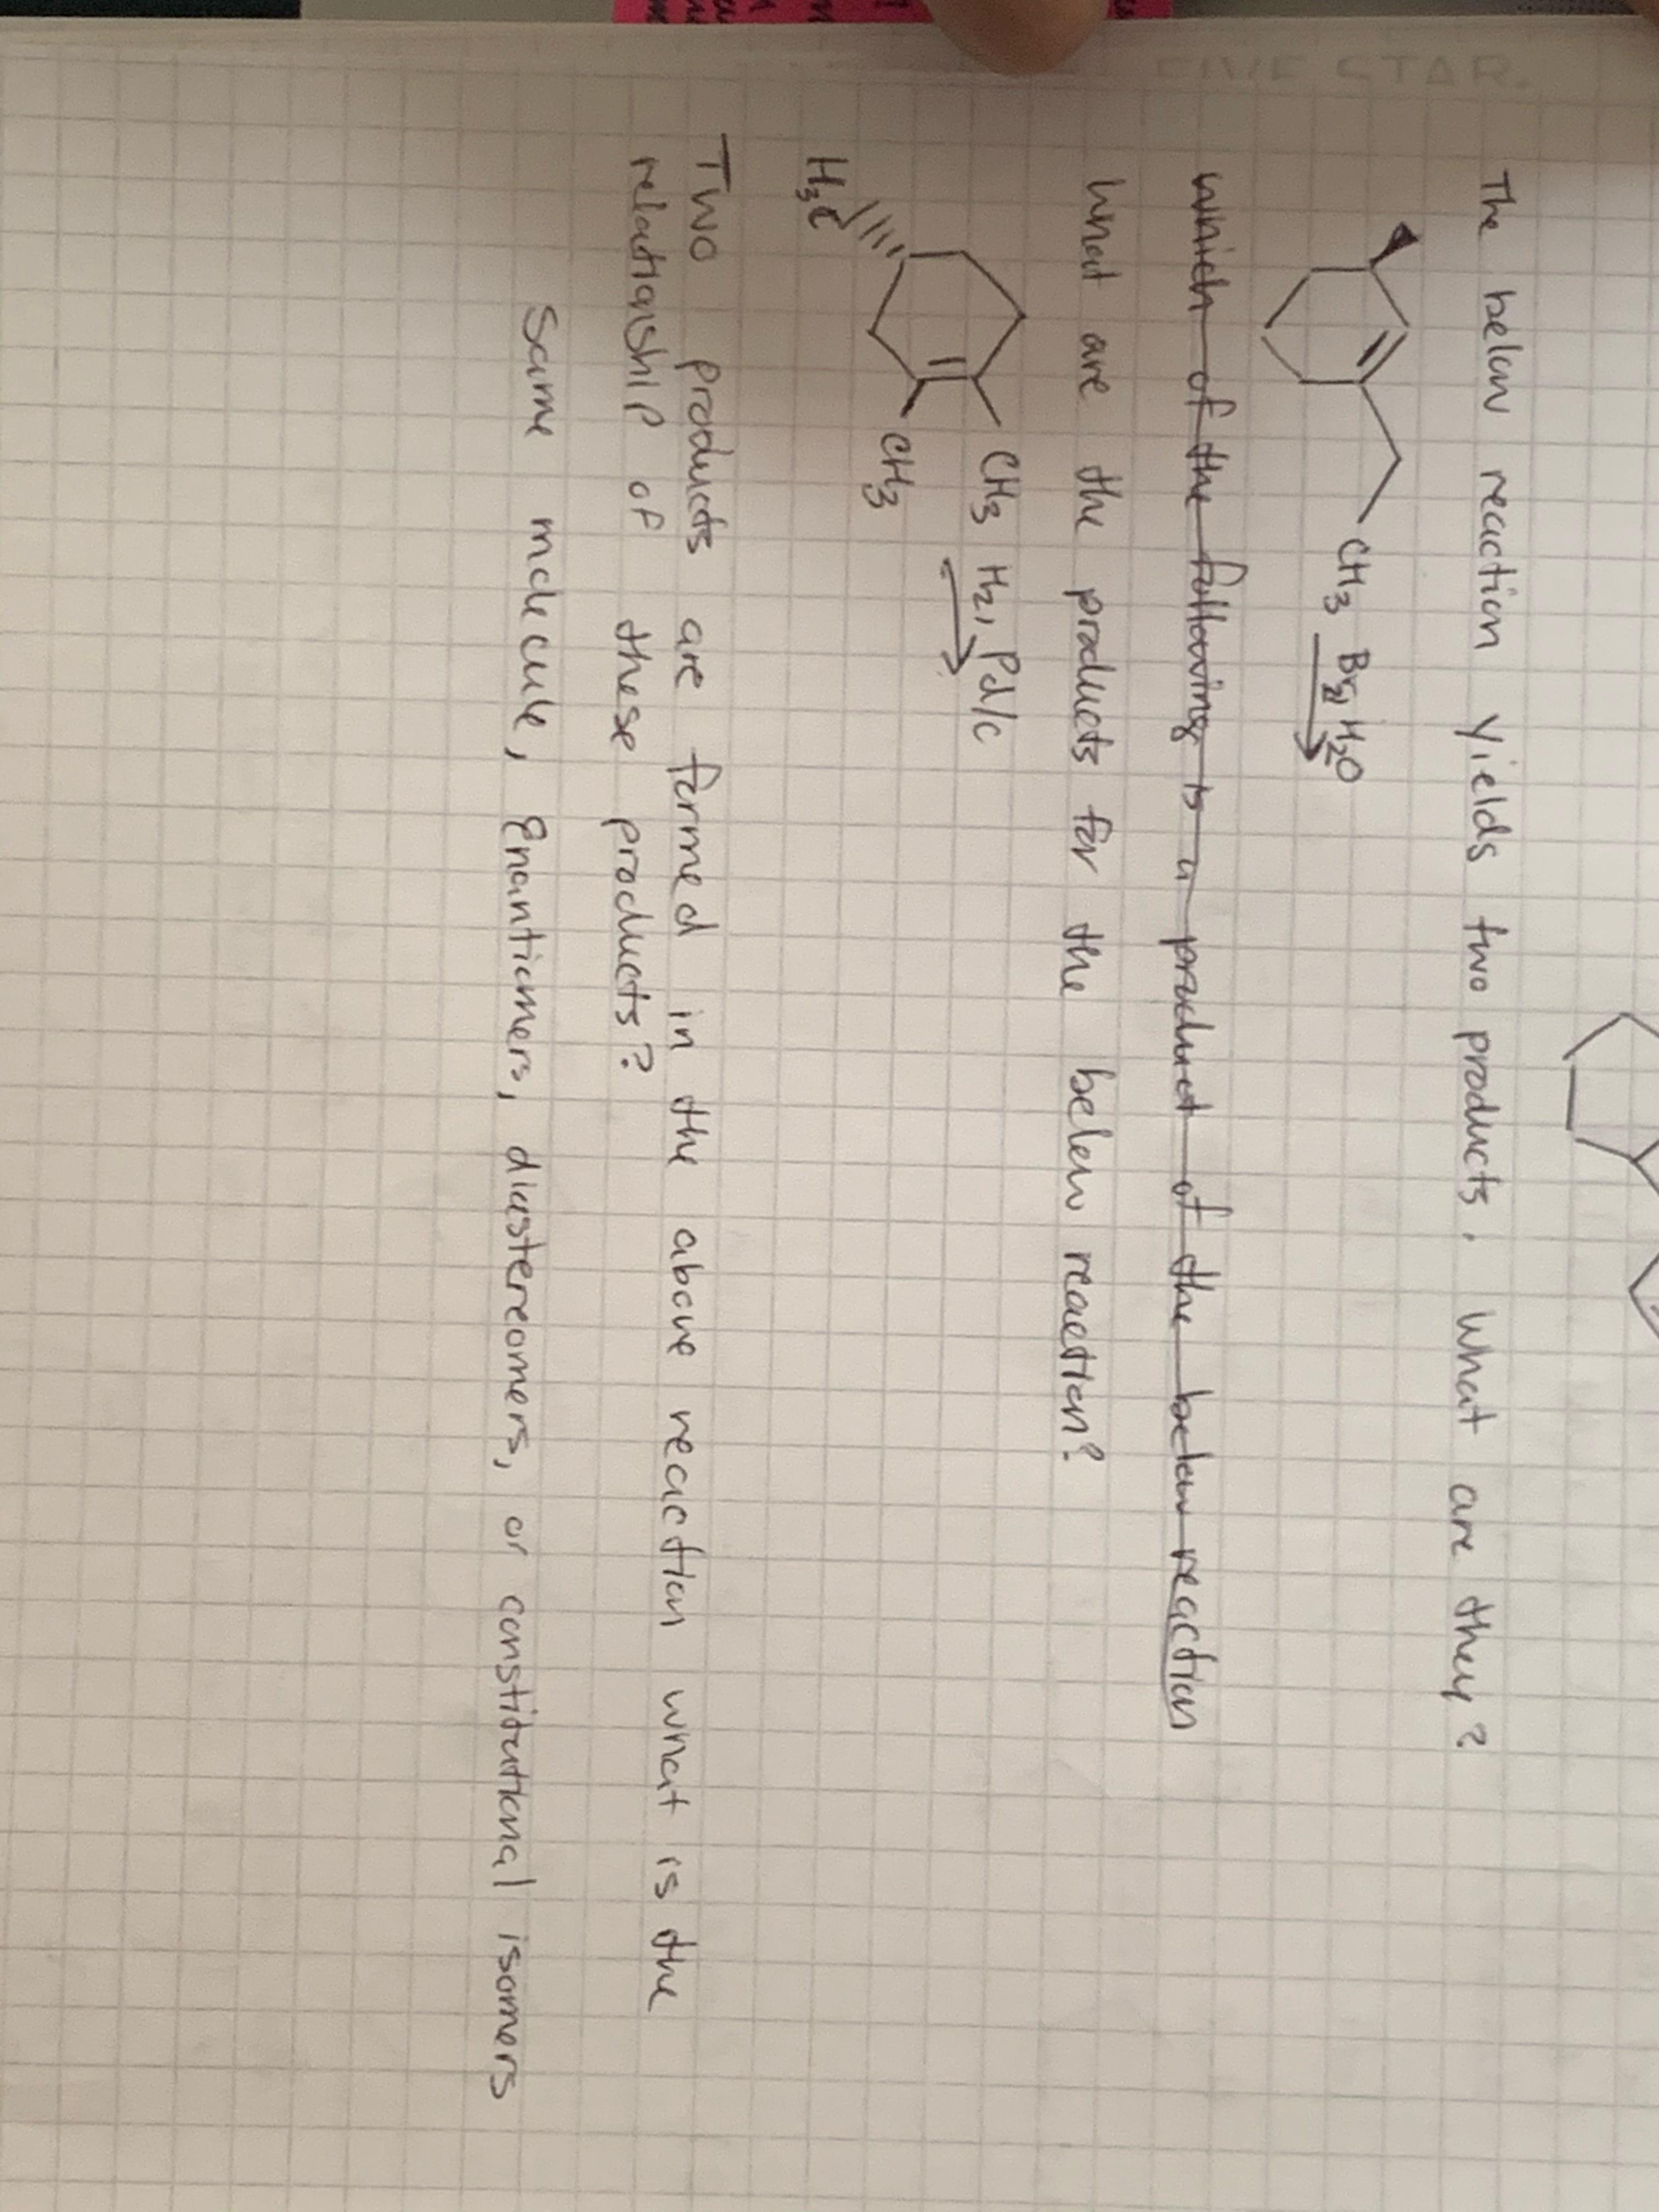 FIVE STAR.
The below reaction yields two products. What are they?
CH3 Br2, H2O
which of the following is a product of the below reaction
What are the products for the below reaction?
H3C
CH3 H2, Pd/c
CH3
Two products are formed in the above reaction what is the
relationship of these products?
Same molecule, Enantiomers, diastereomers, or constitutional isomers